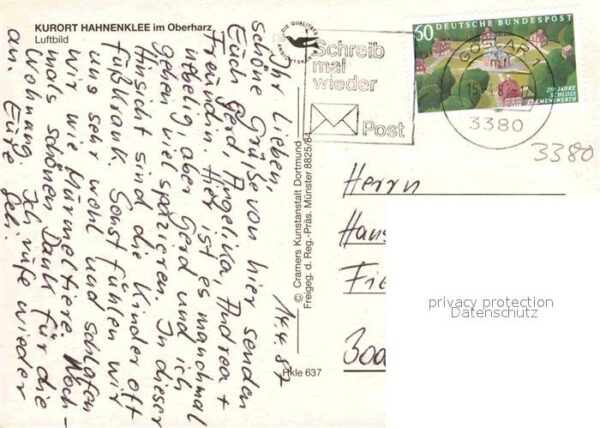 KURORT HAHNENKLEE im Oberharz
Luftbild
DIE QUALITÄTS
ANSICHTSKARTE
Schreib
mal
wieder
Post
50 DEUTSCHE BUNDESPOST
250 JAHRE
SCHLOSS
CLEMENSWERTH
GOSLAR 1
3380
3380
14.4.87
Ihr Lieben,
schöne Grüße von hier senden
Euch Gerd, Angelika, Andrea +
Freundin. Hier ist es manchmal
nebelig, aber Gerd und ich
gehen viel spazieren. In dieser
Hinsicht sind die Kinder oft
fußkrank. Sonst fühlen wir
uns sehr wohl und schlafen
wie Murmeltiere. Noch-
mals schönen Dank für die
Wohnung. Ich rufe wieder
an. Eure
© Cramers Kunstanstalt Dortmund
Freigeg. d. Reg.-Präs. Münster 8825/84
Hkle 637
Herrn
privacy protection
Datenschutz